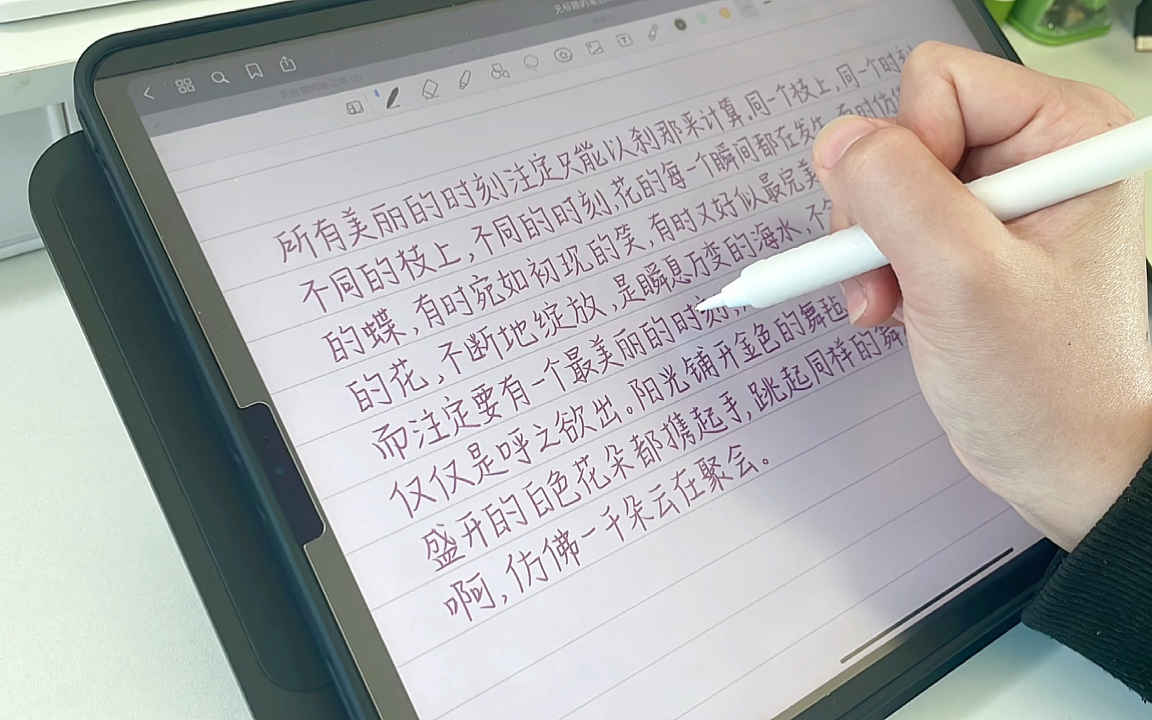 无标题的笔记
所有美丽的时刻注定只能以刹那来计算。同一个枝上，同一个时刻
不同的枝上，不同的时刻，花的每一个瞬间都在发生
的蝶，有时宛如初现的笑，有时又好似最完美
的花，不断地绽放，是瞬息万变的海水，不
而注定要有一个最美丽的时刻，
仅仅是呼之欲出。阳光铺开金色的舞毯
盛开的白色花朵都携起手，跳起同样的舞
啊，仿佛一千朵云在聚会。